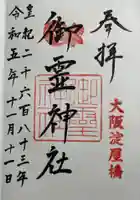 奉拝
大阪淀屋橋
御霊神社
皇紀二千六百八十三年
令和五年十一月十一日